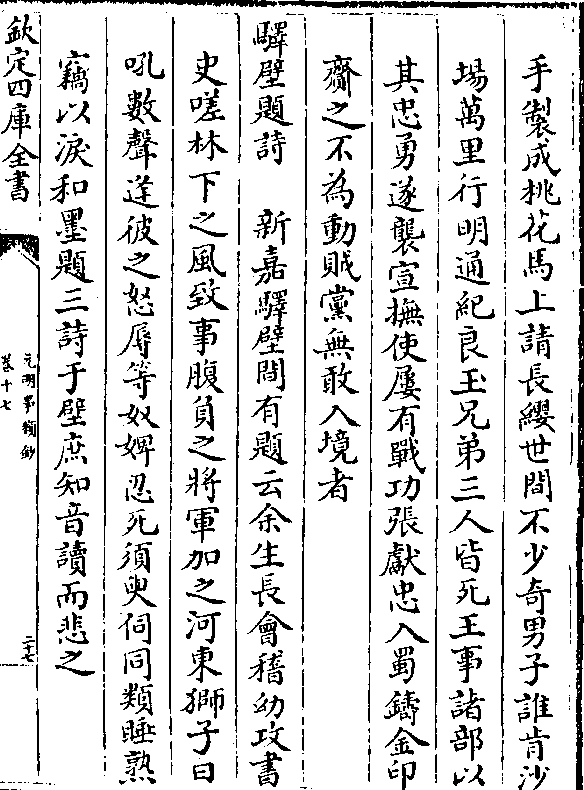 手製成桃花馬上請長纓世間不少奇男子誰肯沙
場萬里行明通紀良玉兄弟三人皆死王事諸部以
其忠勇遂襲宣撫使屢有戰功張獻忠入蜀鑄金印
齎之不為動賊黨無敢入境者
驛壁題詩　新嘉驛壁間有題云余生長會稽幼攻書
史嗟林下之風致事腹負之將軍加之河東獅子日
吼數聲逢彼之怒辱等奴婢忍死須臾伺同類睡熟
竊以淚和墨題三詩于壁庶知音讀而悲之
欽定四庫全書
元明事類鈔
卷十七
二十七